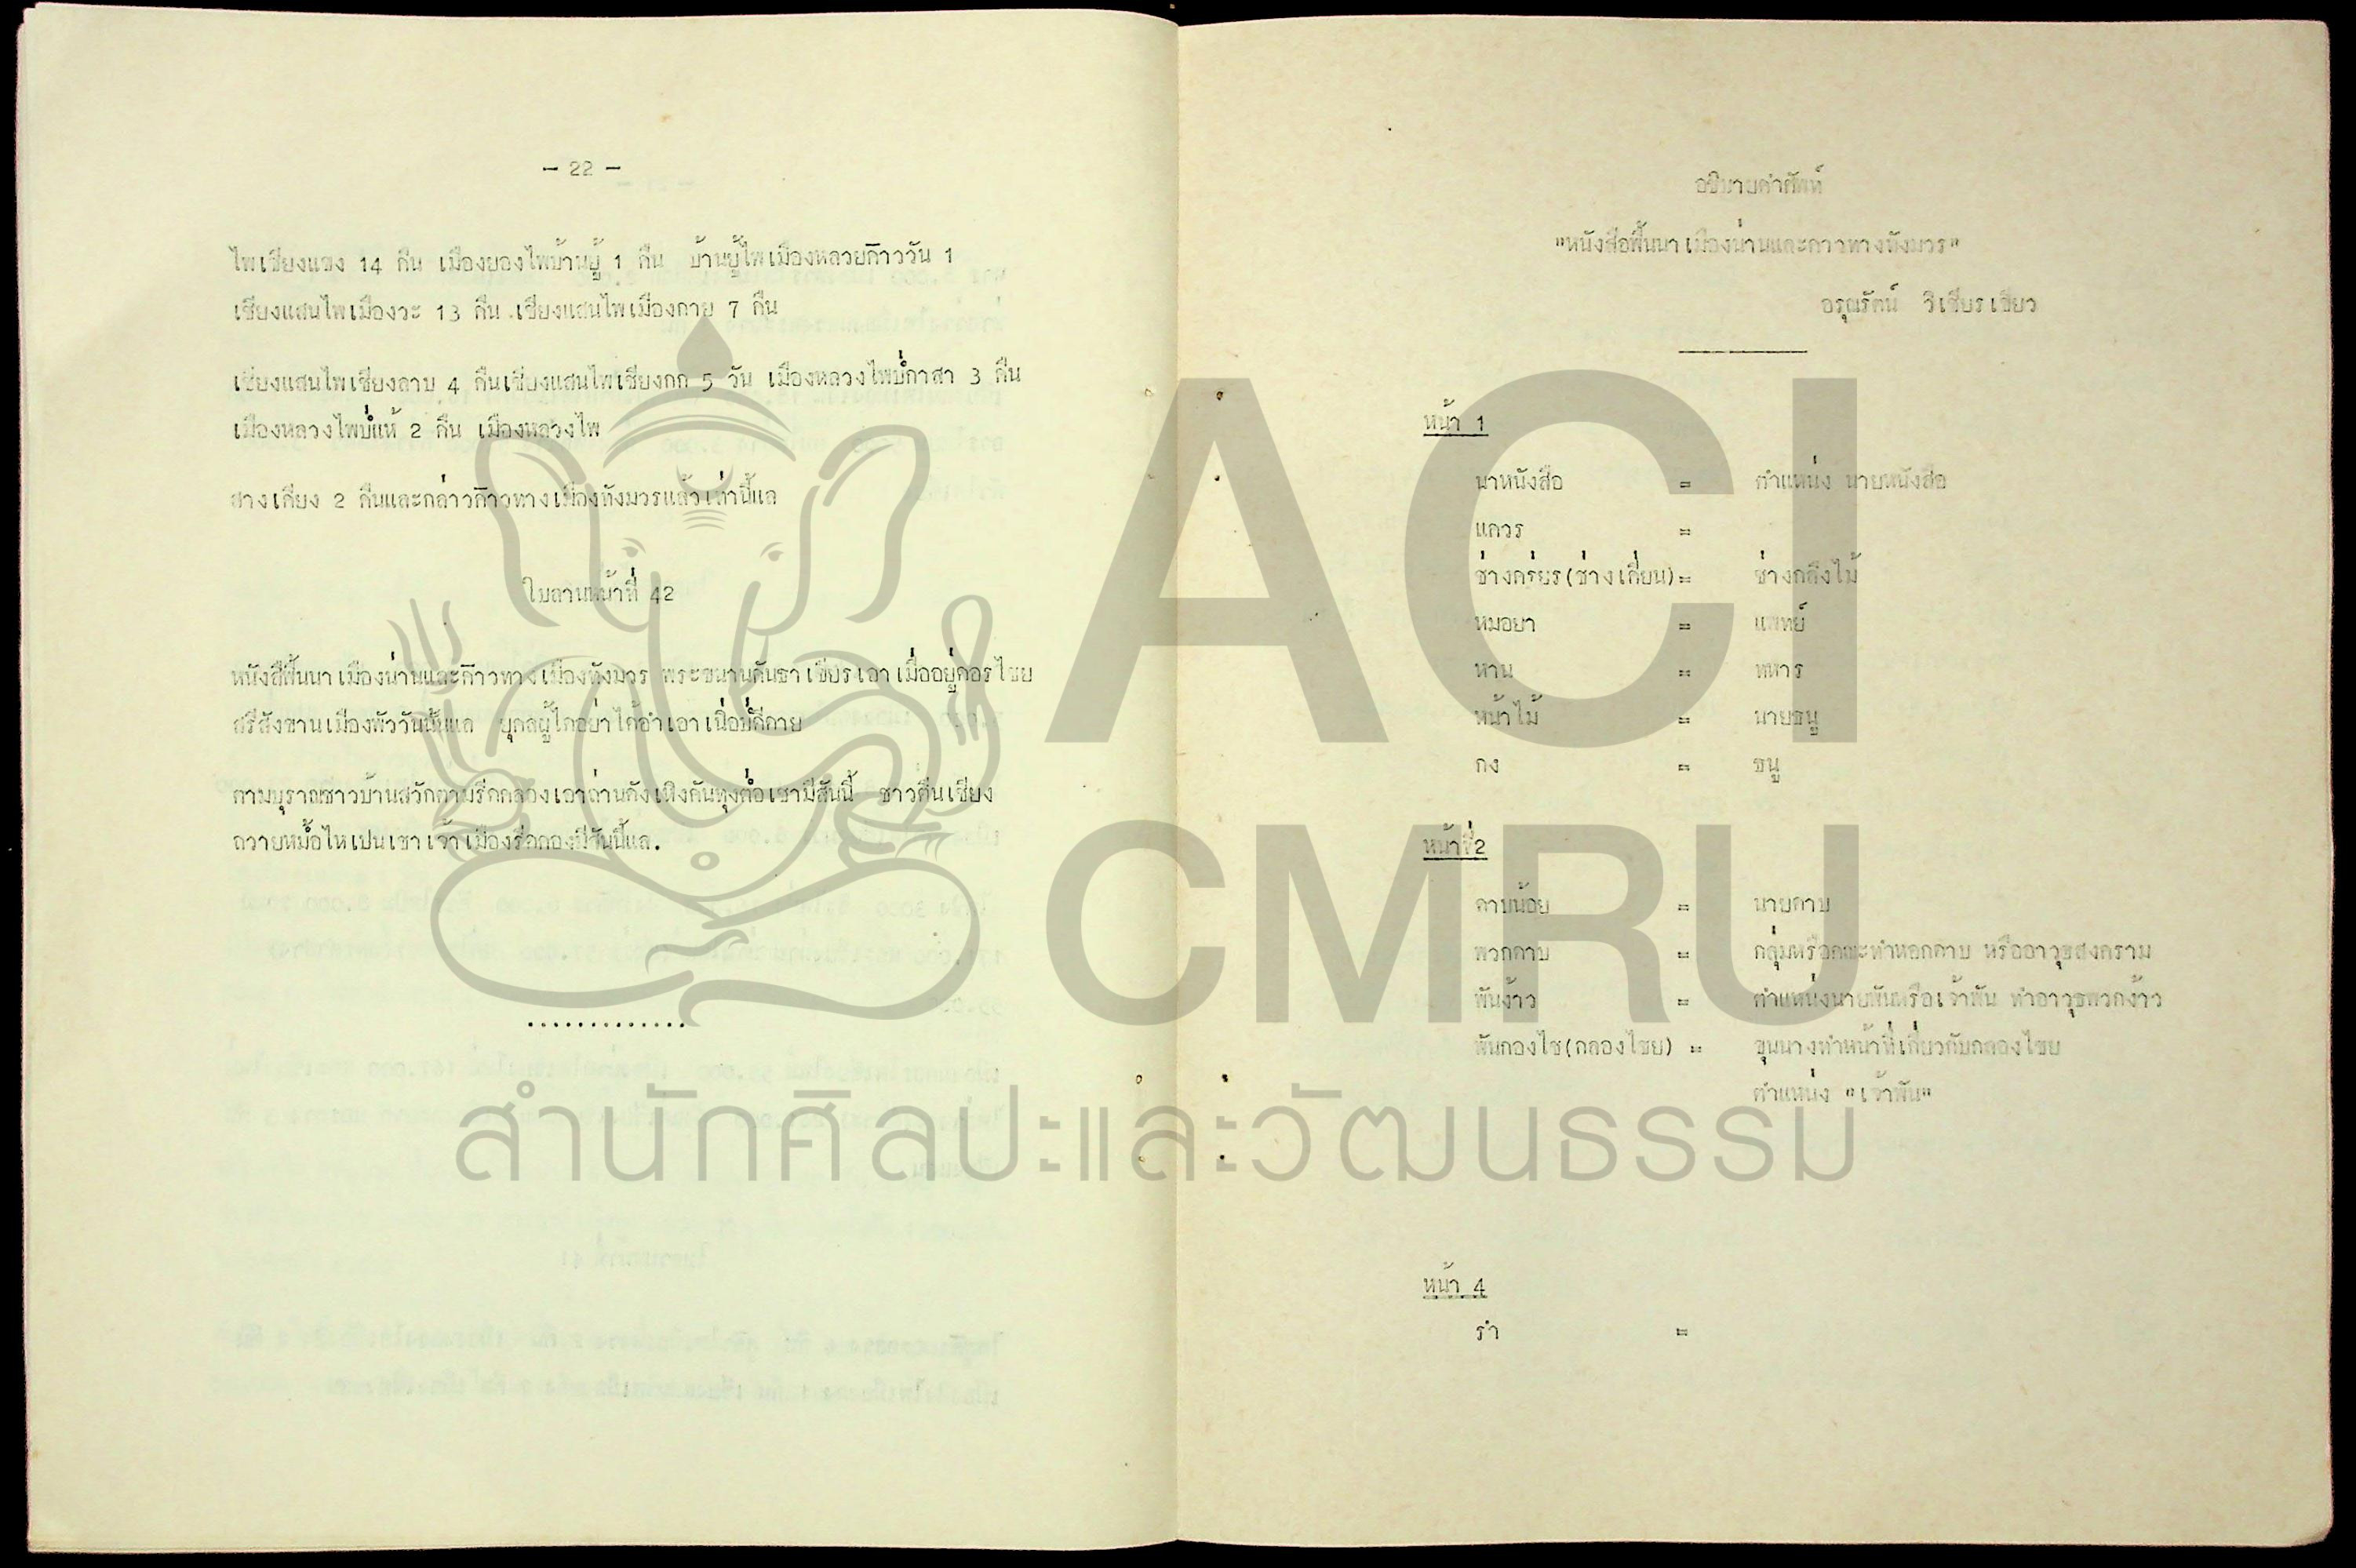 - 22 -
ไพเชียงแขง 14 คืน เมืองยองไพบ้านยู้ 1 คืน บ้านยู้ไพเมืองหลวยก๊าววัน 1
เชียงแสนไพเมืองวะ 13 คืน เชียงแสนไพเมืองกาย 7 คืน
เชียงแสนไพเชียงลาบ 4 คืนเชียงแสนไพเชียงกก 5 วัน เมืองหลวงไพบ่ำกาสา 3 คืน
เมืองหลวงไพบ่ำแห้ 2 คืน เมืองหลวงไพ
สางเกียง 2 คืนและกล่าวก๊าวทางเมืองทังมวรแล้วเท่านี้แล
ใบลานหน้าที่ 42
หนังสือพื้นนาเมืองน่านและก๊าวทางเมืองทังมวร พระขนานคันธาเขียรเอาเมื่ออยู่ดอรไชย
สรีสังขานเมืองพัววันนั้นแล ยุคลผู้ใดอย่าได้อำเอาเนื่อบ่ดีดาย
ตามบุราณชาวบ้านสวักตามรีดคลองเอาถ่านดังเถิงคันทุงต่อเชามีสันนี้ ชาวคืนเชียง
ถวายหม้อไหเปนเชาเจ้าเมืองรีดกองมีสันนี้แล.
.............
อธิบายคำศัพท์
"หนังสือพื้นนาเมืองน่านและคาวทางทังมวร"
อรุณรัตน์ วิเชียรเขียว
หน้า 1
นาหนังสือ = ตำแหน่ง นายหนังสือ
แควร =
ช่างคร่ยร(ช่างเคี่ยน)= ช่างกลึงไม้
หมอยา = แพทย์
หาน = ทหาร
หน้าไม้ = นายธนู
กง = ธนู
หน้าที่2
ดาบน้อย = นายดาบ
พวกดาบ = กลุ่มหรือคณะทำหอกดาบ หรืออาวุธสงคราม
พันง้าว = ตำแหน่งนายพันหรือเจ้าพัน ทำอาวุธพวกง้าว
พันกองไช(กลองไชย) = ขุนนางทำหน้าที่เกี่ยวกับกลองไชย
ตำแหน่ง "เจ้าพัน"
หน้า 4
รำ =
ACI
CMRU
สำนักศิลปะและวัฒนธรรม